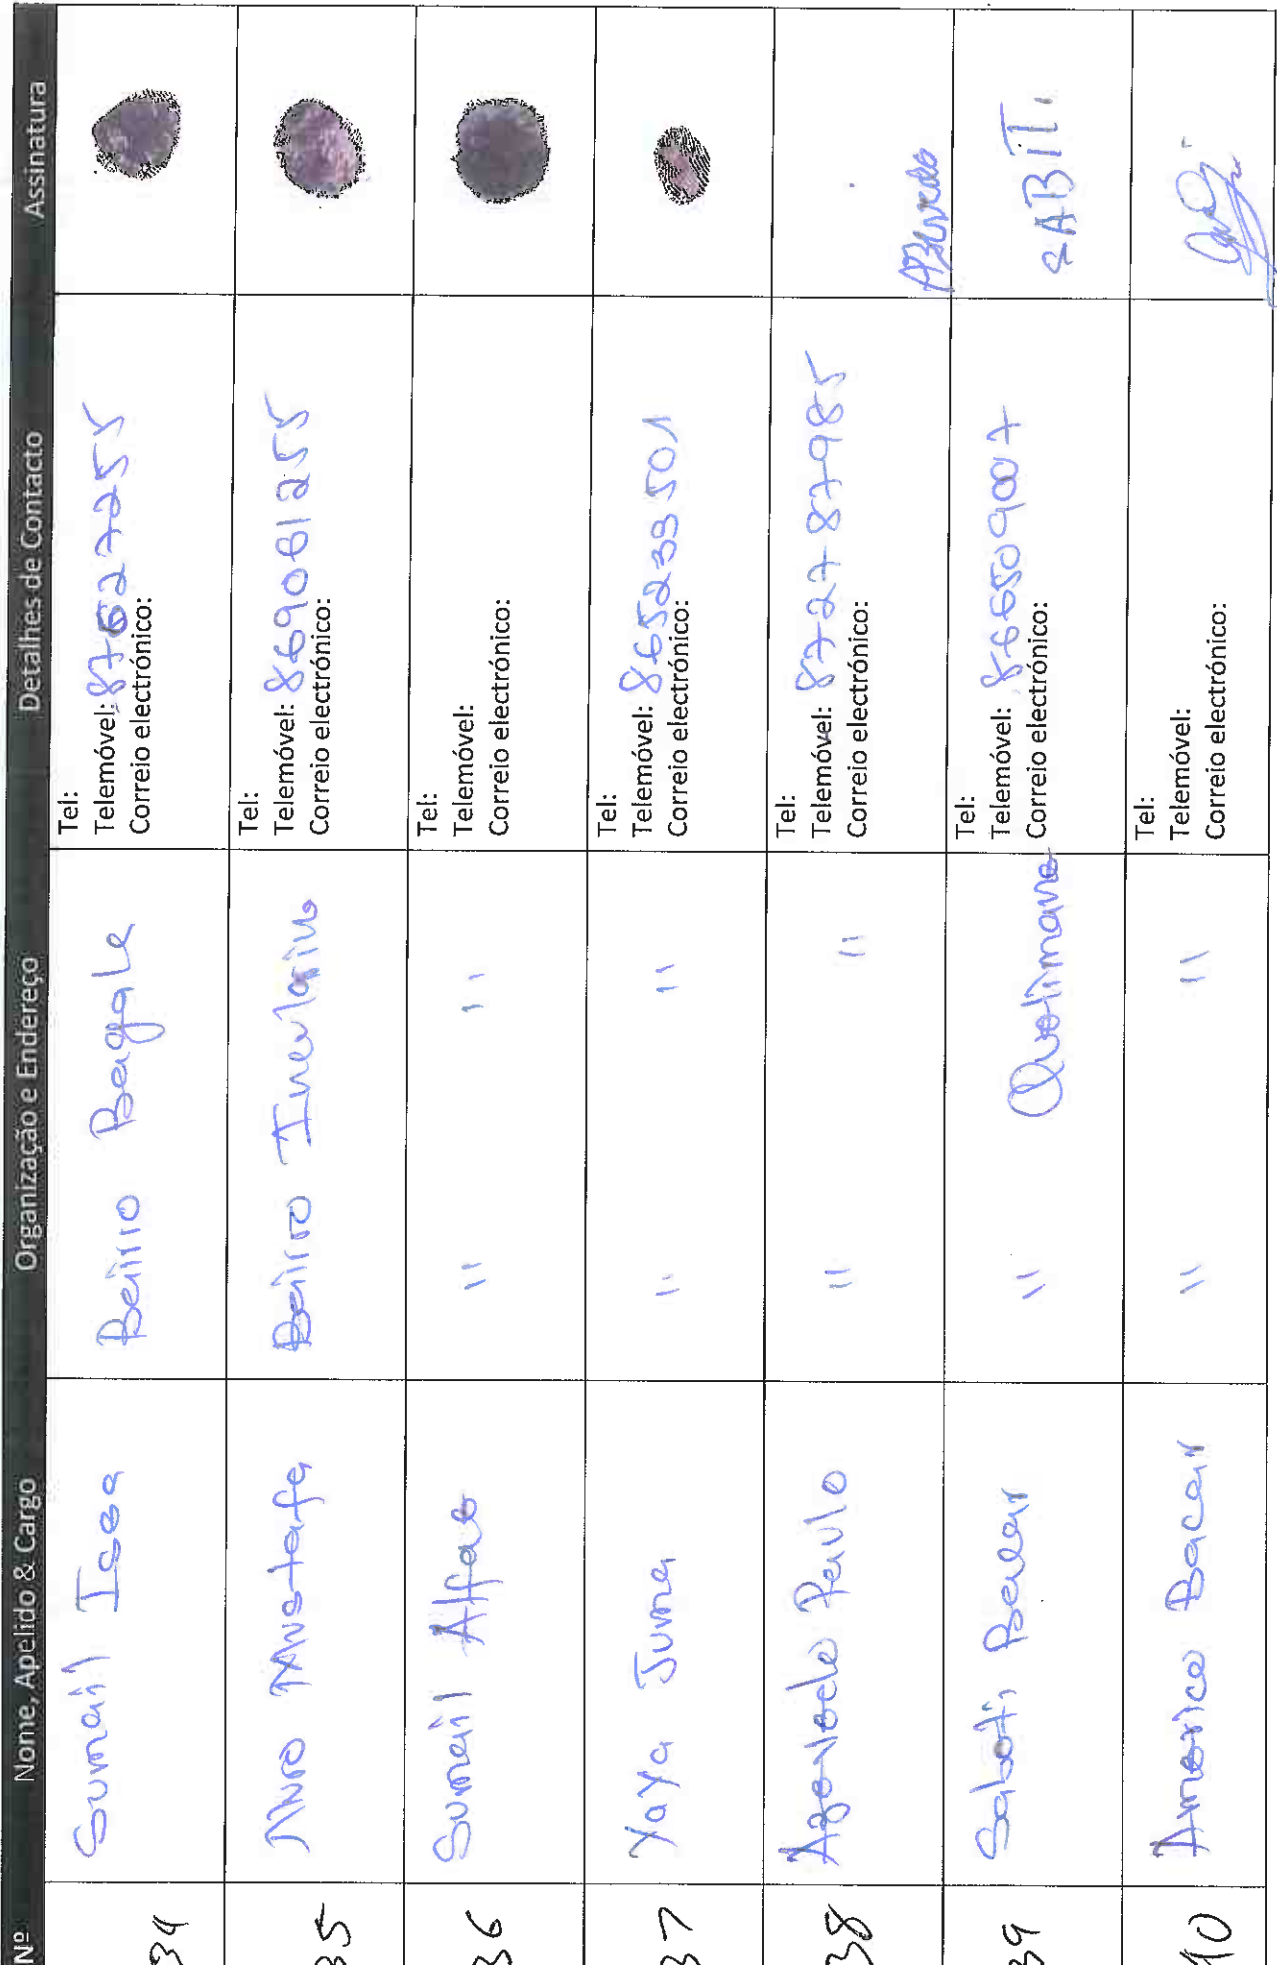 Nº Nome, Apelido & Cargo Organização e Endereço Detalhes de Contacto Assinatura
34 Sumail Issa Bairro Bagala Tel:
Telemóvel: 876272255
Correio electrónico:
35 Nuro Mustafa Bairro Tel:
Telemóvel: 869061255
Correio electrónico:
36 Sumail Alfao " " Tel:
Telemóvel:
Correio electrónico:
37 Yaya Juma " " Tel:
Telemóvel: 865239501
Correio electrónico:
38 Azevedo Paulo " " Tel:
Telemóvel: 872787985
Correio electrónico:
39 Sabati Bacar " Quolimane Tel:
Telemóvel: 866509007
Correio electrónico:
SABITI
40 Americo Bacar " " Tel:
Telemóvel:
Correio electrónico: